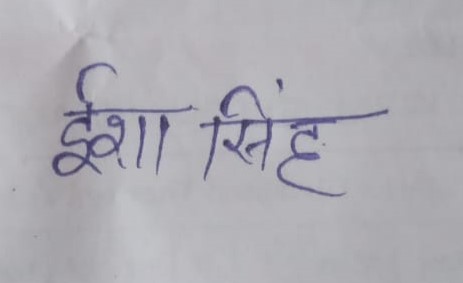 ईशा सिंह